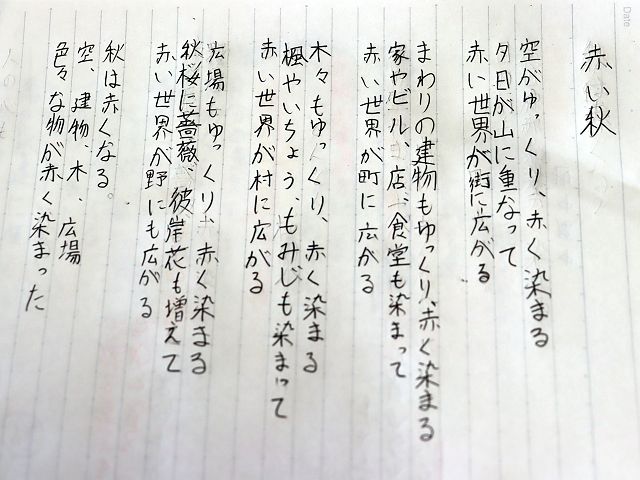 Date
赤い秋
空がゆっくり、赤く染まる
夕日が山に重なって
赤い世界が街に広がる
まわりの建物もゆっくり、赤く染まる
家やビル、店、食堂も染まって
赤い世界が町に広がる
木々もゆっくり、赤く染まる
楓やいちょう、もみじも染まって
赤い世界が村に広がる
広場もゆっくり、赤く染まる
秋桜に薔薇、彼岸花も増えて
赤い世界が野にも広がる
秋は赤くなる。
空、建物、木、広場
色々な物が赤く染まった